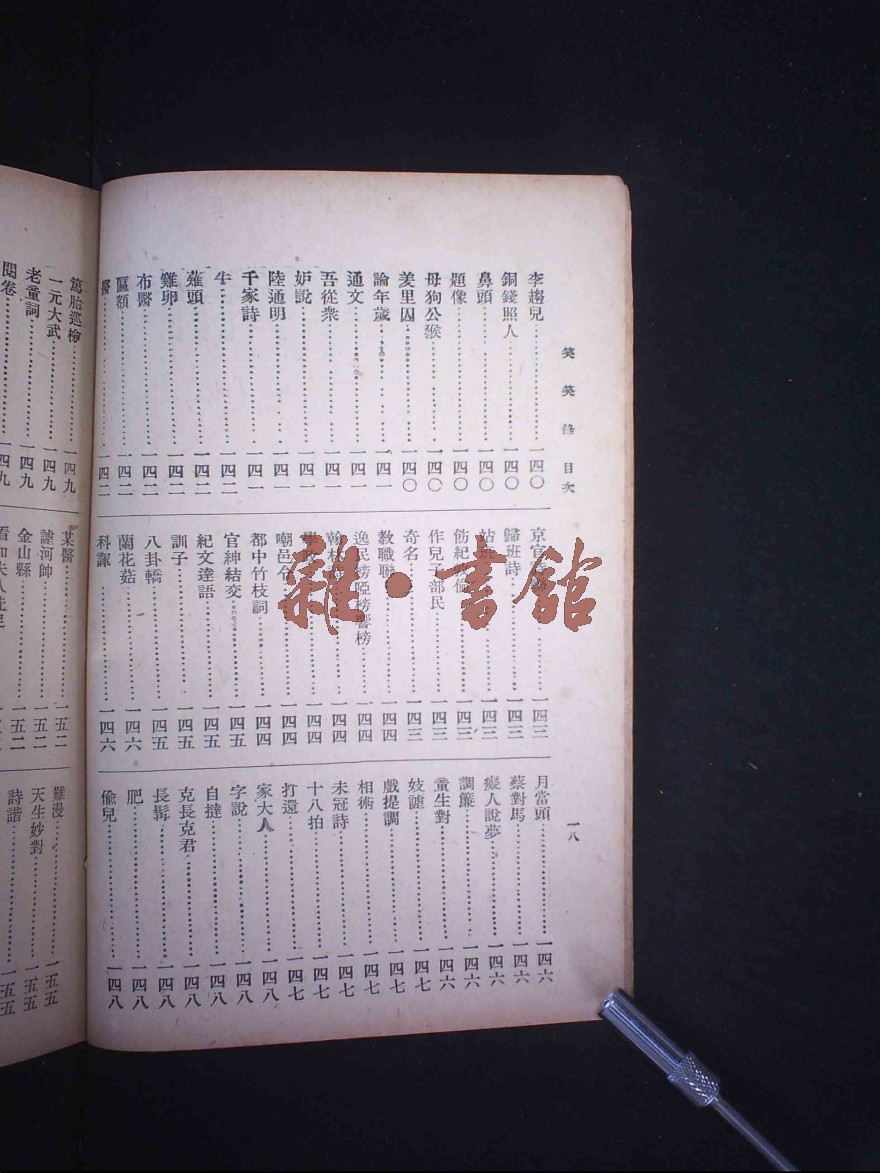 笑笑錄目次
一八
李趨兒 一四〇
銅錢照人 一四〇
鼻頭 一四〇
題像 一四〇
母狗公猴 一四〇
羑里囚 一四〇
論年歲 一四一
通文 一四一
吾從衆 一四一
妒說 一四一
陸通明 一四一
千家詩 一四一
牛 一四二
薙頭 一四二
雞卵 一四二
布醫 一四二
匾額 一四二
醫 一四二
京官 一四三
歸班詩 一四三
一四三
飭紀 一四三
作兒子部民 一四三
奇名 一四三
教職聯 一四四
逸民榜啞榜響榜 一四四
翰林 一四四
一四四
嘲邑令 一四四
都中竹枝詞 一四四
官紳結交 一四五
紀文達語 一四五
訓子 一四五
八卦轎 一四五
蘭花菇 一四六
科諢 一四六
月當頭 一四六
蔡對馬 一四六
癡人說夢 一四六
調簾 一四六
童生對 一四六
妓謔 一四七
戲提調 一四七
相術 一四七
未冠詩 一四七
十八拍 一四七
打還 一四七
家大人 一四八
字說 一四八
自撻 一四八
克長克君 一四八
長髯 一四八
肥 一四八
偷兒 一四八
篤胎巡檢 一四九
一元大武 一四九
老童詞 一四九
閱卷 一四九
某醫 一五二
謔河帥 一五二
金山縣 一五二
難漫 一五五
天生妙對 一五五
詩諧 一五五
雜·書館